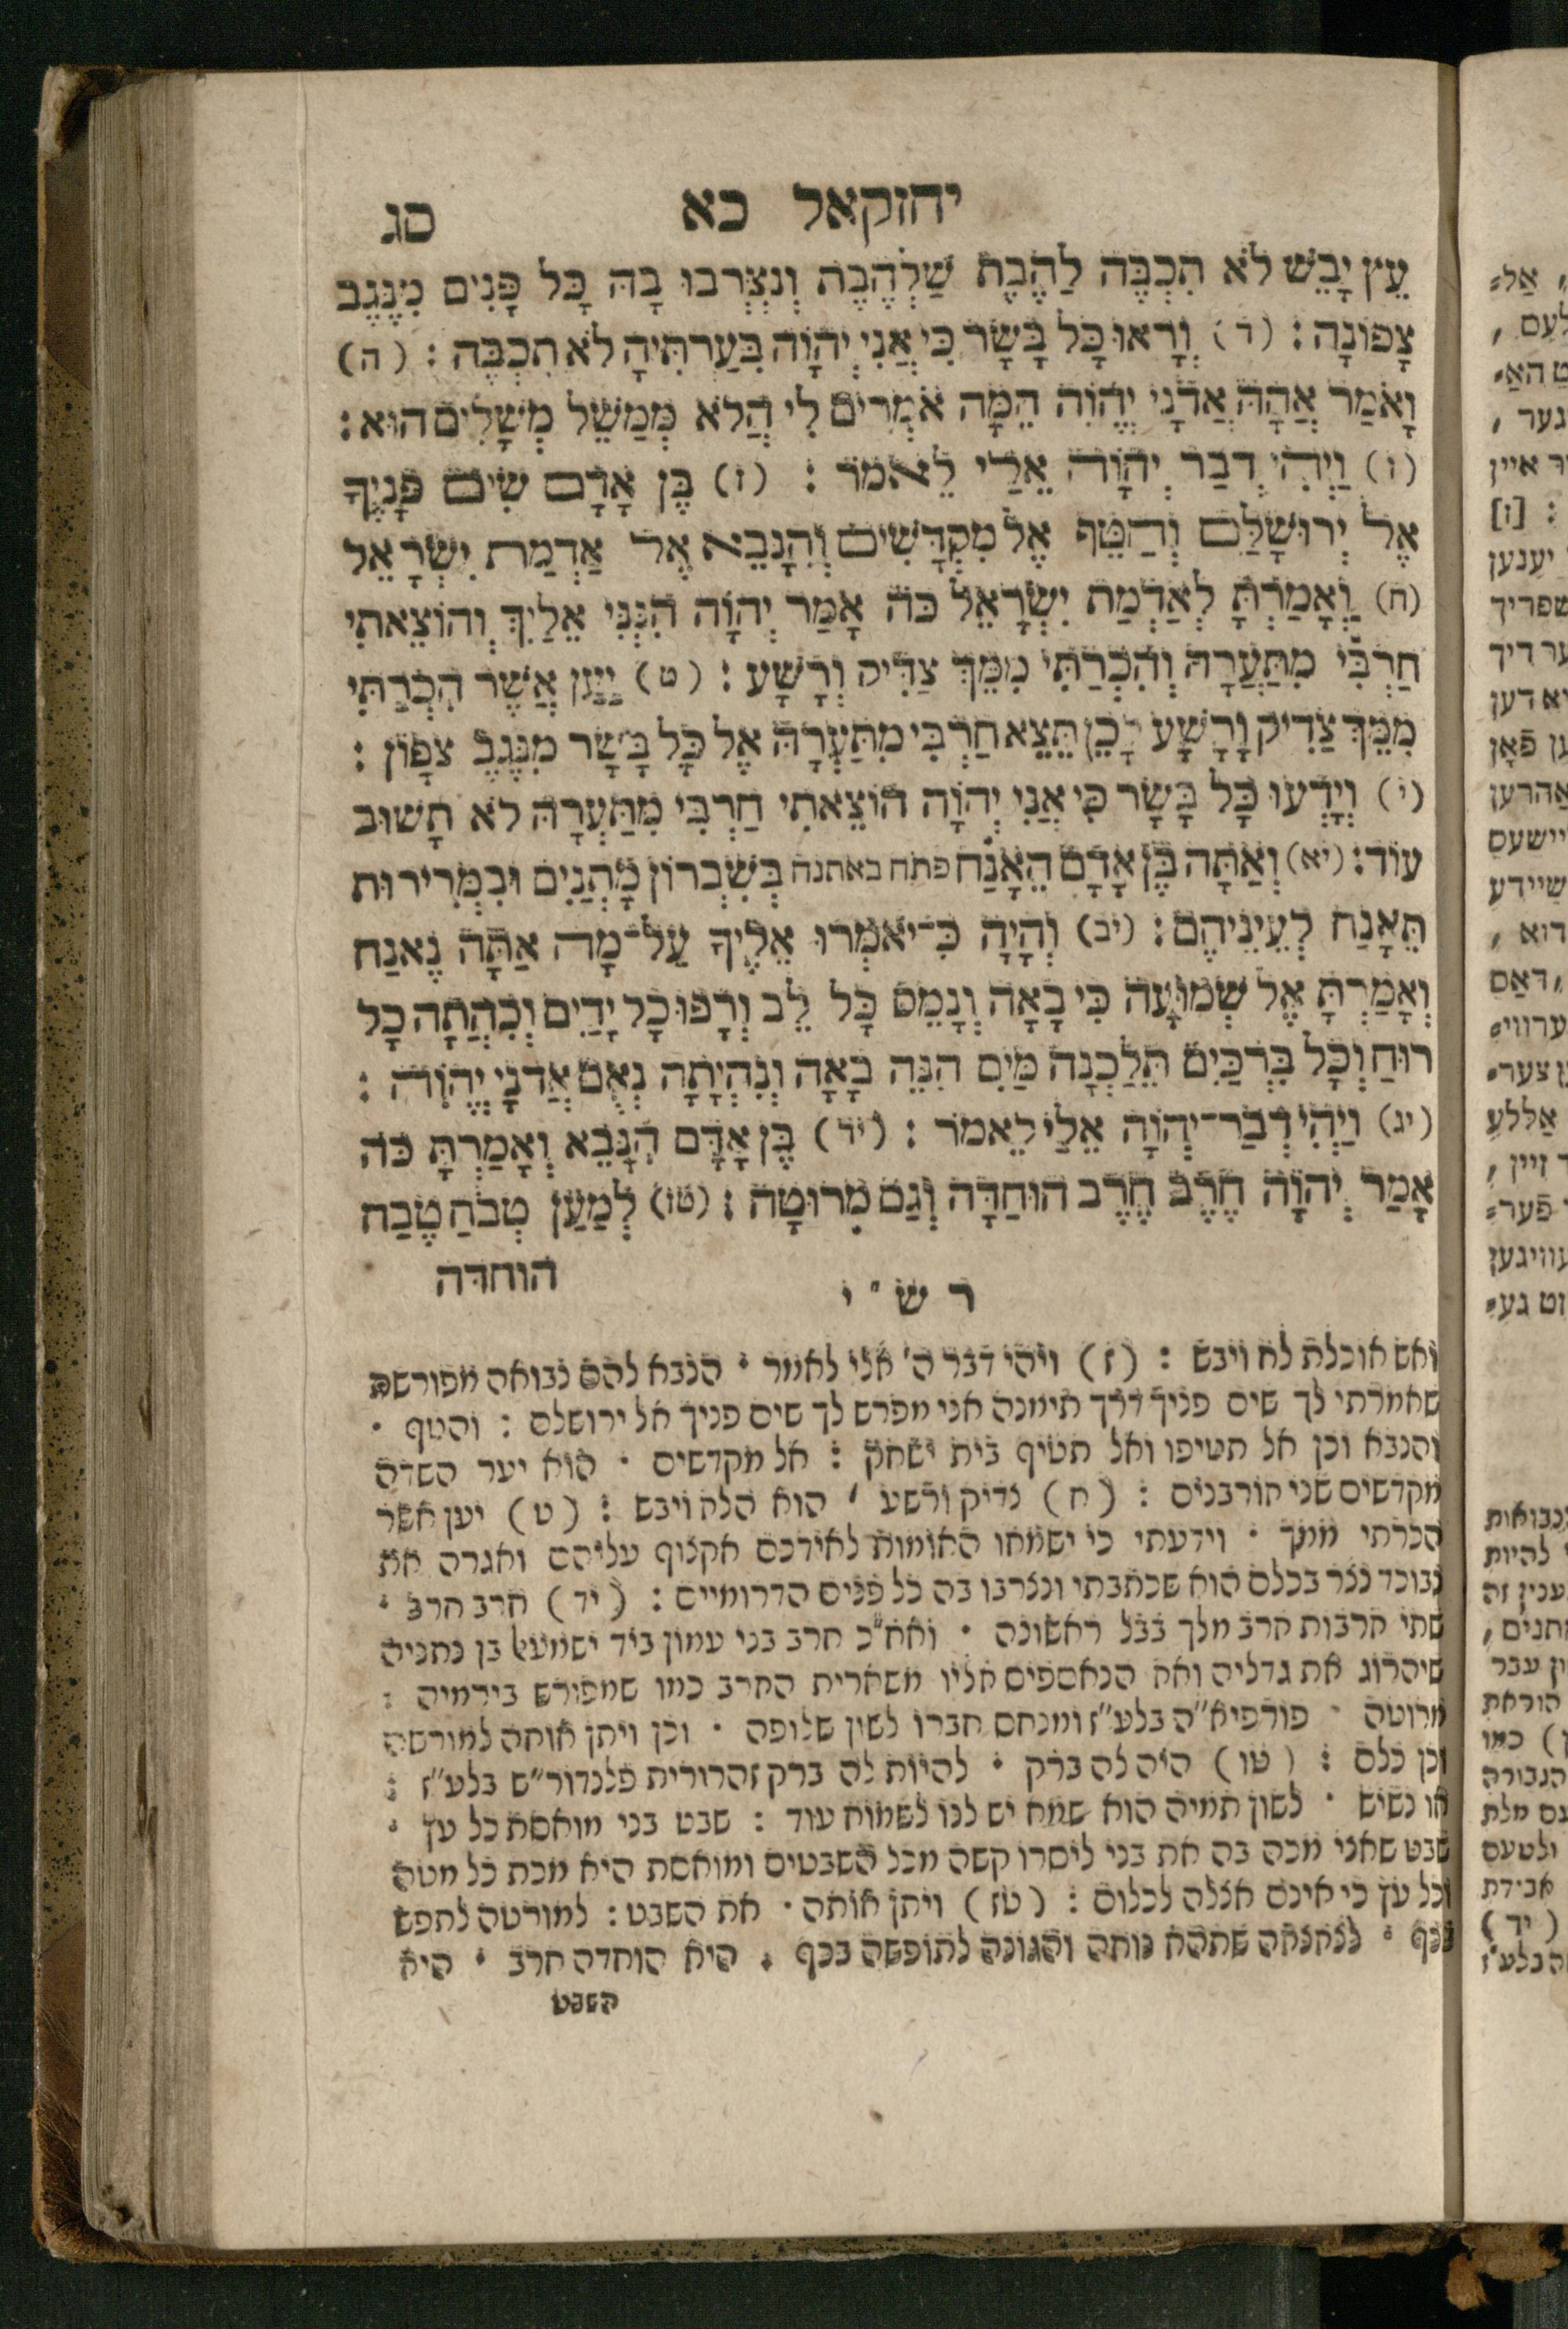 יחזקאל כא סג
עֵץ יָבֵשׁ לֹא תִכְבֶּה לַהֶבֶת שַׁלְהֶבֶת וְנִצְרְבוּ בָהּ כָּל פָּנִים מִנֶּגֶב
צָפוֹנָה : (ד) וְרָאוּ כָּל בָּשָׂר כִּי אֲנִי יְהוָֹה בִּעַרְתִּיהָ לֹא תִכְבֶּה : (ה)
וָאֹמַר אֲהָהּ אֲדֹנָי יֱהֹוִה הֵמָּה אֹמְרִים לִי הֲלֹא מְמַשֵּׁל מְשָׁלִים הוּא :
(ו) וַיְהִי דְבַר יְהוָֹה אֵלַי לֵאמֹר : (ז) בֶּן אָדָם שִׂים פָּנֶיךָ
אֶל יְרוּשָׁלִַם וְהַטֵּף אֶל מִקְדָּשִׁים וְהִנָּבֵא אֶל אַדְמַת יִשְׂרָאֵל
(ח) וְאָמַרְתָּ לְאַדְמַת יִשְׂרָאֵל כֹּה אָמַר יְהוָֹה הִנְנִי אֵלַיִךְ וְהוֹצֵאתִי
חַרְבִּי מִתַּעְרָהּ וְהִכְרַתִּי מִמֵּךְ צַדִּיק וְרָשָׁע : (ט) יַעַן אֲשֶׁר הִכְרַתִּי
מִמֵּךְ צַדִּיק וְרָשָׁע לָכֵן תֵּצֵא חַרְבִּי מִתַּעְרָהּ אֶל כָּל בָּשָׂר מִנֶּגֶב צָפוֹן :
(י) וְיָדְעוּ כָּל בָּשָׂר כִּי אֲנִי יְהוָֹה הוֹצֵאתִי חַרְבִּי מִתַּעְרָהּ לֹא תָשׁוּב
עוֹד : (יא) וְאַתָּה בֶן אָדָם הֵאָנַח פתח באתנח בְּשִׁבְרוֹן מָתְנַיִם וּבִמְרִירוּת
תֵּאָנַח לְעֵינֵיהֶם : (יב) וְהָיָה כִּי־יֹאמְרוּ אֵלֶיךָ עַל־מָה אַתָּה נֶאֱנָח
וְאָמַרְתָּ אֶל שְׁמוּעָה כִּי בָאָה וְנָמֵס כָּל לֵב וְרָפוּ כָל יָדַיִם וְכִהֲתָה כָל
רוּחַ וְכָל בִּרְכַּיִם תֵּלַכְנָה מַּיִם הִנֵּה בָאָה וְנִהְיָתָה נְאֻם אֲדֹנָי יֱהֹוִה :
(יג) וַיְהִי דְבַר־יְהוָֹה אֵלַי לֵאמֹר : (יד) בֶּן אָדָם הִנָּבֵא וְאָמַרְתָּ כֹּה
אָמַר יְהוָֹה חֶרֶב חֶרֶב הוּחַדָּה וְגַם מְרוּטָה : (טו) לְמַעַן טְבֹחַ טֶבַח
הוחדה
ר ש " י
ואש אוכלת לח ויבש : (ז) ויהי דבר ה' אלי לאמר · הנבא להם נבואה מפורשה
שאמרתי לך שים פניך דרך תימנה אני מפרש לך שים פניך אל ירושלם : והטף ·
והנבא וכן אל תטיפו ואל תטיף בית ישחק : אל מקדשים · הוא יער השדה
מקדשים שני חורבנים : (ח) צדיק ורשע · הוא הלח ויבש : (ט) יען אשר
הכרתי ממך · וידעתי כי ישמחו האומות לאידכם אקצוף עליהם ואגרה את
נבוכד נצר בכלם הוא שכתבתי ונצרבו בה כל פנים הדרומיים : (יד) חרב חרב ·
שתי חרבות חרב מלך בבל ראשונה · ואח"כ חרב בני עמון ביד ישמעאל בן נתניה
שיהרוג את גדליה ואת הנאספים אליו משארית החרב כמו שמפורש בירמיה :
מרוטה · פורפיא"ה בלע"ז ומנחם חברו לשון שלופה · וכן ויתן אותה למורטה
וכן כלם : (טו) היה לה ברק · להיות לה ברק זהרורית פלנדור"ש בלע"ז :
או נשיש · לשון תמיה הוא שמא יש לנו לשמוח עוד : שבט בני מואסת כל עץ ·
שבט שאני מכה בה את בני ליסרו קשה מכל השבטים ומואסת היא מכת כל מטה
וכל עץ כי אינם אצלה לכלום : (טז) ויתן אותה · את השבט : למורטה לתפש
בכף · לצחצחה שתהא נוחה והגונה לתופשה בכף · היא הוחדה חרב · היא
השבט